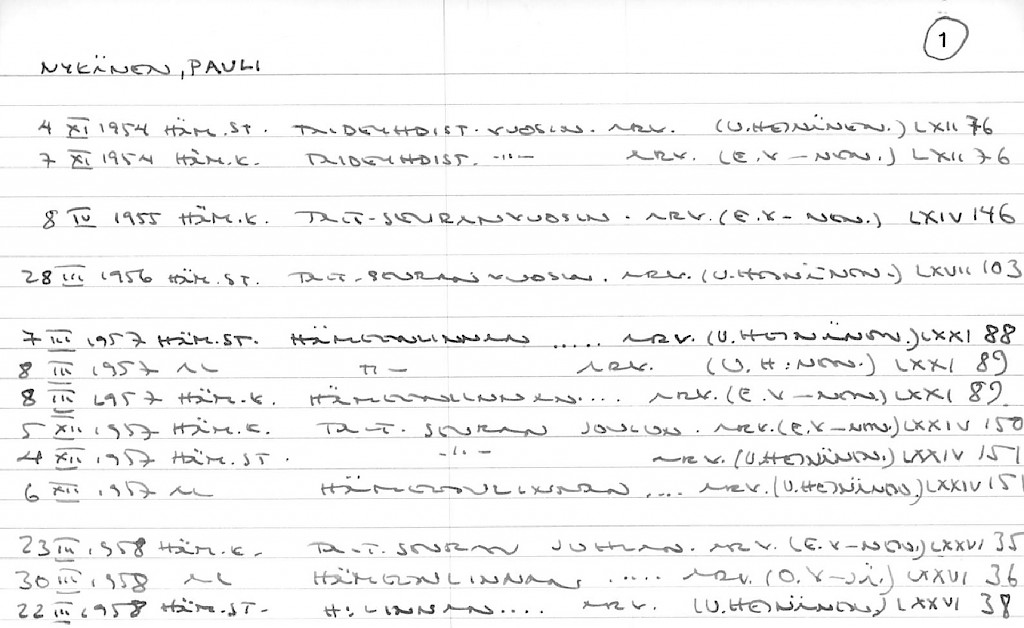 1
NYKÄNEN, PAULI
4 XI 1954 HÄM.ST. TAIDEYHDIST. VUOSIN. ARV. (U.HEINÄNEN.) LXII 76
7 XI 1954 HÄM.K. TAIDEYHDIST. -"- ARV. (E.V-NEN.) LXII 76
8 IV 1955 HÄM.K. TAIT-SEURAN VUOSIN. ARV. (E.V-NEN.) LXIV 146
28 III 1956 HÄM.ST. TAIT-SEURAN VUOSIN. ARV. (U.HEINÄNEN.) LXVII 103
7 III 1957 HÄM.ST. HÄMEENLINNAN ..... ARV. (U.HEINÄNEN.) LXXI 88
8 III 1957 AL "- ARV. (U.H:NEN.) LXXI 89
8 III 1957 HÄM.K. HÄMEENLINNAN.... ARV. (E.V-NEN) LXXI 89.
5 XII 1957 HÄM.K. TAIT. SEURAN JOULUN. ARV. (E.V-NEN.) LXXIV 150
4 XII 1957 HÄM.ST. -"- ARV. (U.HEINÄNEN.) LXXIV 151
6 XII 1957 AL HÄMEENLINNAN .... ARV. (U.HEINÄNEN.) LXXIV 151
23 III 1958 HÄM.K. TAIT. SEURAN JUHLAN. ARV. (E.V-NEN.) LXXVI 35
30 III 1958 AL HÄMEENLINNAN, ..... ARV. (O.V-JÄ.) LXXVI 36
22 III 1958 HÄM.ST- H:LINNAN.... ARV. (U.HEINÄNEN.) LXXVI 38